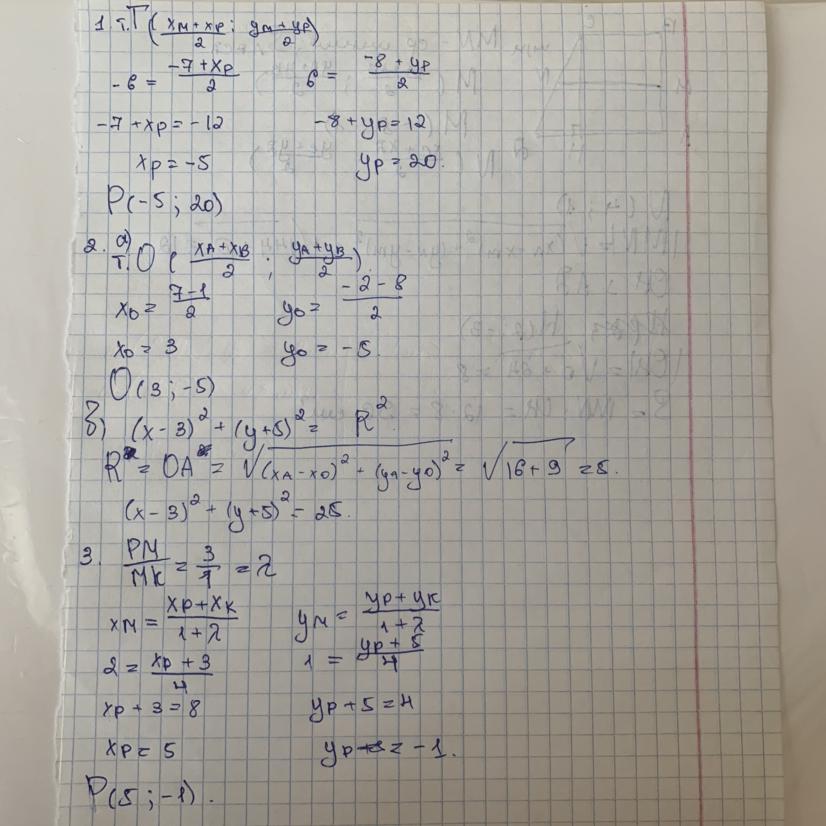 1. т. T ( (xм + xр)/2 ; (yм + yр)/2 )
-6 = (-7 + xр)/2   6 = (-8 + yр)/2
-7 + xр = -12   -8 + yр = 12
xр = -5   yр = 20.
P(-5 ; 20)
2. а) т. O ( (xA + xB)/2 ; (yA + yB)/2 ).
x0 = (7 - 1)/2   y0 = (-2 - 8)/2
x0 = 3   y0 = -5.
O(3 ; -5)
б) (x - 3)² + (y + 5)² = R².
R = OA = √((xA - x0)² + (yA - y0)²) = √(16 + 9) = 5.
(x - 3)² + (y + 5)² = 25.
3. PM/MK = 3/1 = λ
xм = (xр + xк)/(1 + λ)   yм = (yр + yк)/(1 + λ)
2 = (xр + 3)/4   1 = (yр + 5)/4
xр + 3 = 8   yр + 5 = 4
xр = 5   yр = -1.
P(5 ; -1).